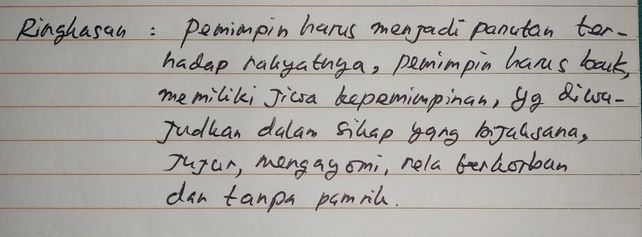 Ringkasan : Pemimpin harus menjadi panutan ter-
hadap rakyatnya, pemimpin harus baik,
memiliki jiwa kepemimpinan, yg diwu-
judkan dalam sikap yang bijaksana,
jujur, mengayomi, rela berkorban
dan tanpa pamrih.